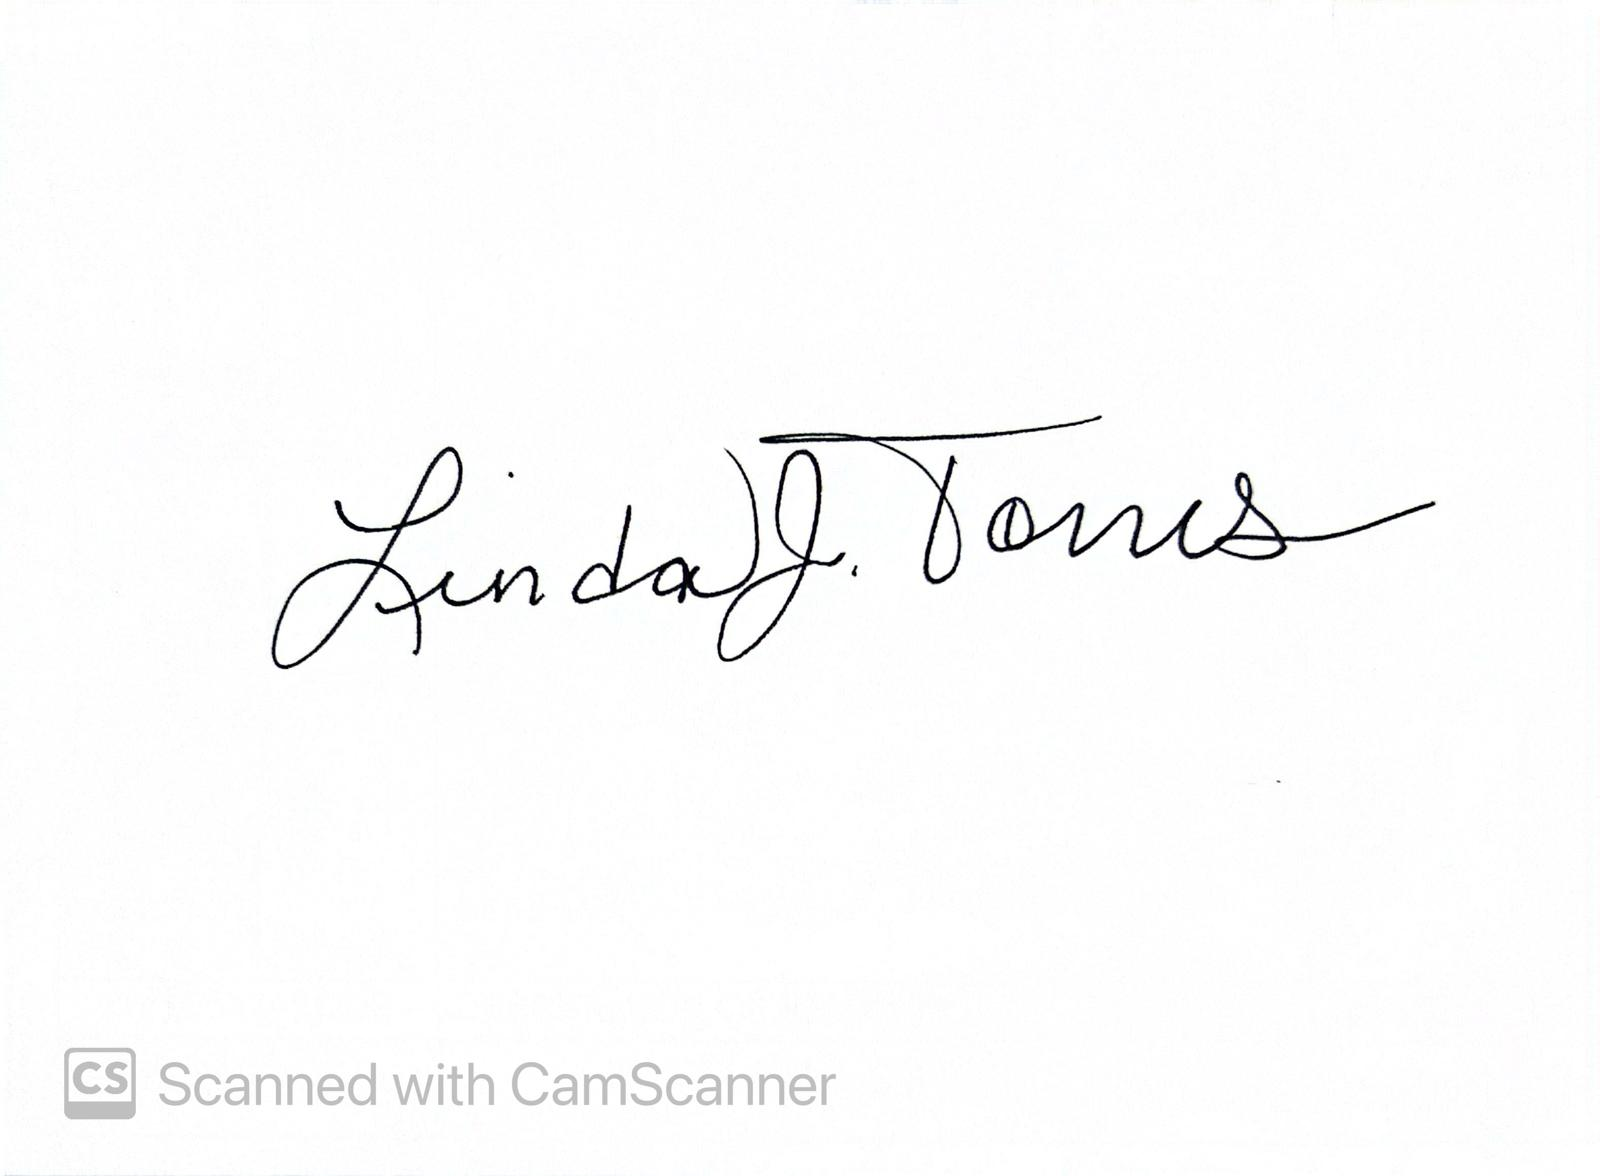 Linda J. Torres
CS Scanned with CamScanner